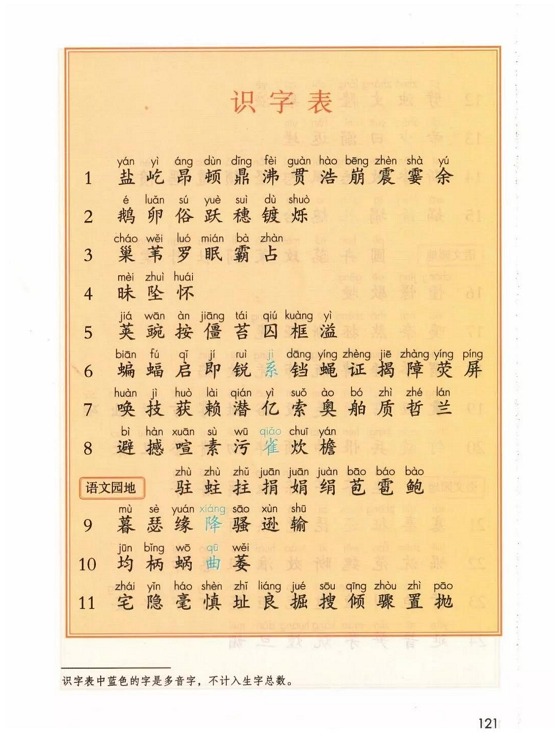 识字表
yán yì áng dùn dǐng fèi guàn hào bēng zhèn shà yú
1 盐 屹 昂 顿 鼎 沸 贯 浩 崩 震 霎 余
é luǎn sú yuè suì dù shuò
2 鹅 卵 俗 跃 穗 镀 烁
cháo wěi luó mián bà zhàn
3 巢 苇 罗 眠 霸 占
mèi zhuì huái
4 昧 坠 怀
jiá wān àn jiāng tái qiú kuàng yì
5 荚 豌 按 僵 苔 囚 框 溢
biān fú qǐ jí ruì jì dāng yíng zhèng jiē zhàng yíng píng
6 蝙 蝠 启 即 锐 系 铛 蝇 证 揭 障 荧 屏
huàn jì huò lài qián yì suǒ ào bó zhì zhé lán
7 唤 技 获 赖 潜 亿 索 奥 舶 质 哲 兰
bì hàn xuān sù wū qiǎo chuī yán
8 避 撼 喧 素 污 雀 炊 檐
zhù zhù zhǔ juān juān juàn bāo báo bào
语文园地 驻 蛀 拄 捐 娟 绢 苞 雹 鲍
mù sè yuán xiáng sāo xùn shū
9 暮 瑟 缘 降 骚 逊 输
jūn bǐng wō qū wěi
10 均 柄 蜗 曲 萎
zhái yǐn háo shèn zhǐ liáng jué sōu qīng zhòu zhì pāo
11 宅 隐 毫 慎 址 良 掘 搜 倾 骤 置 抛
识字表中蓝色的字是多音字，不计入生字总数。
121